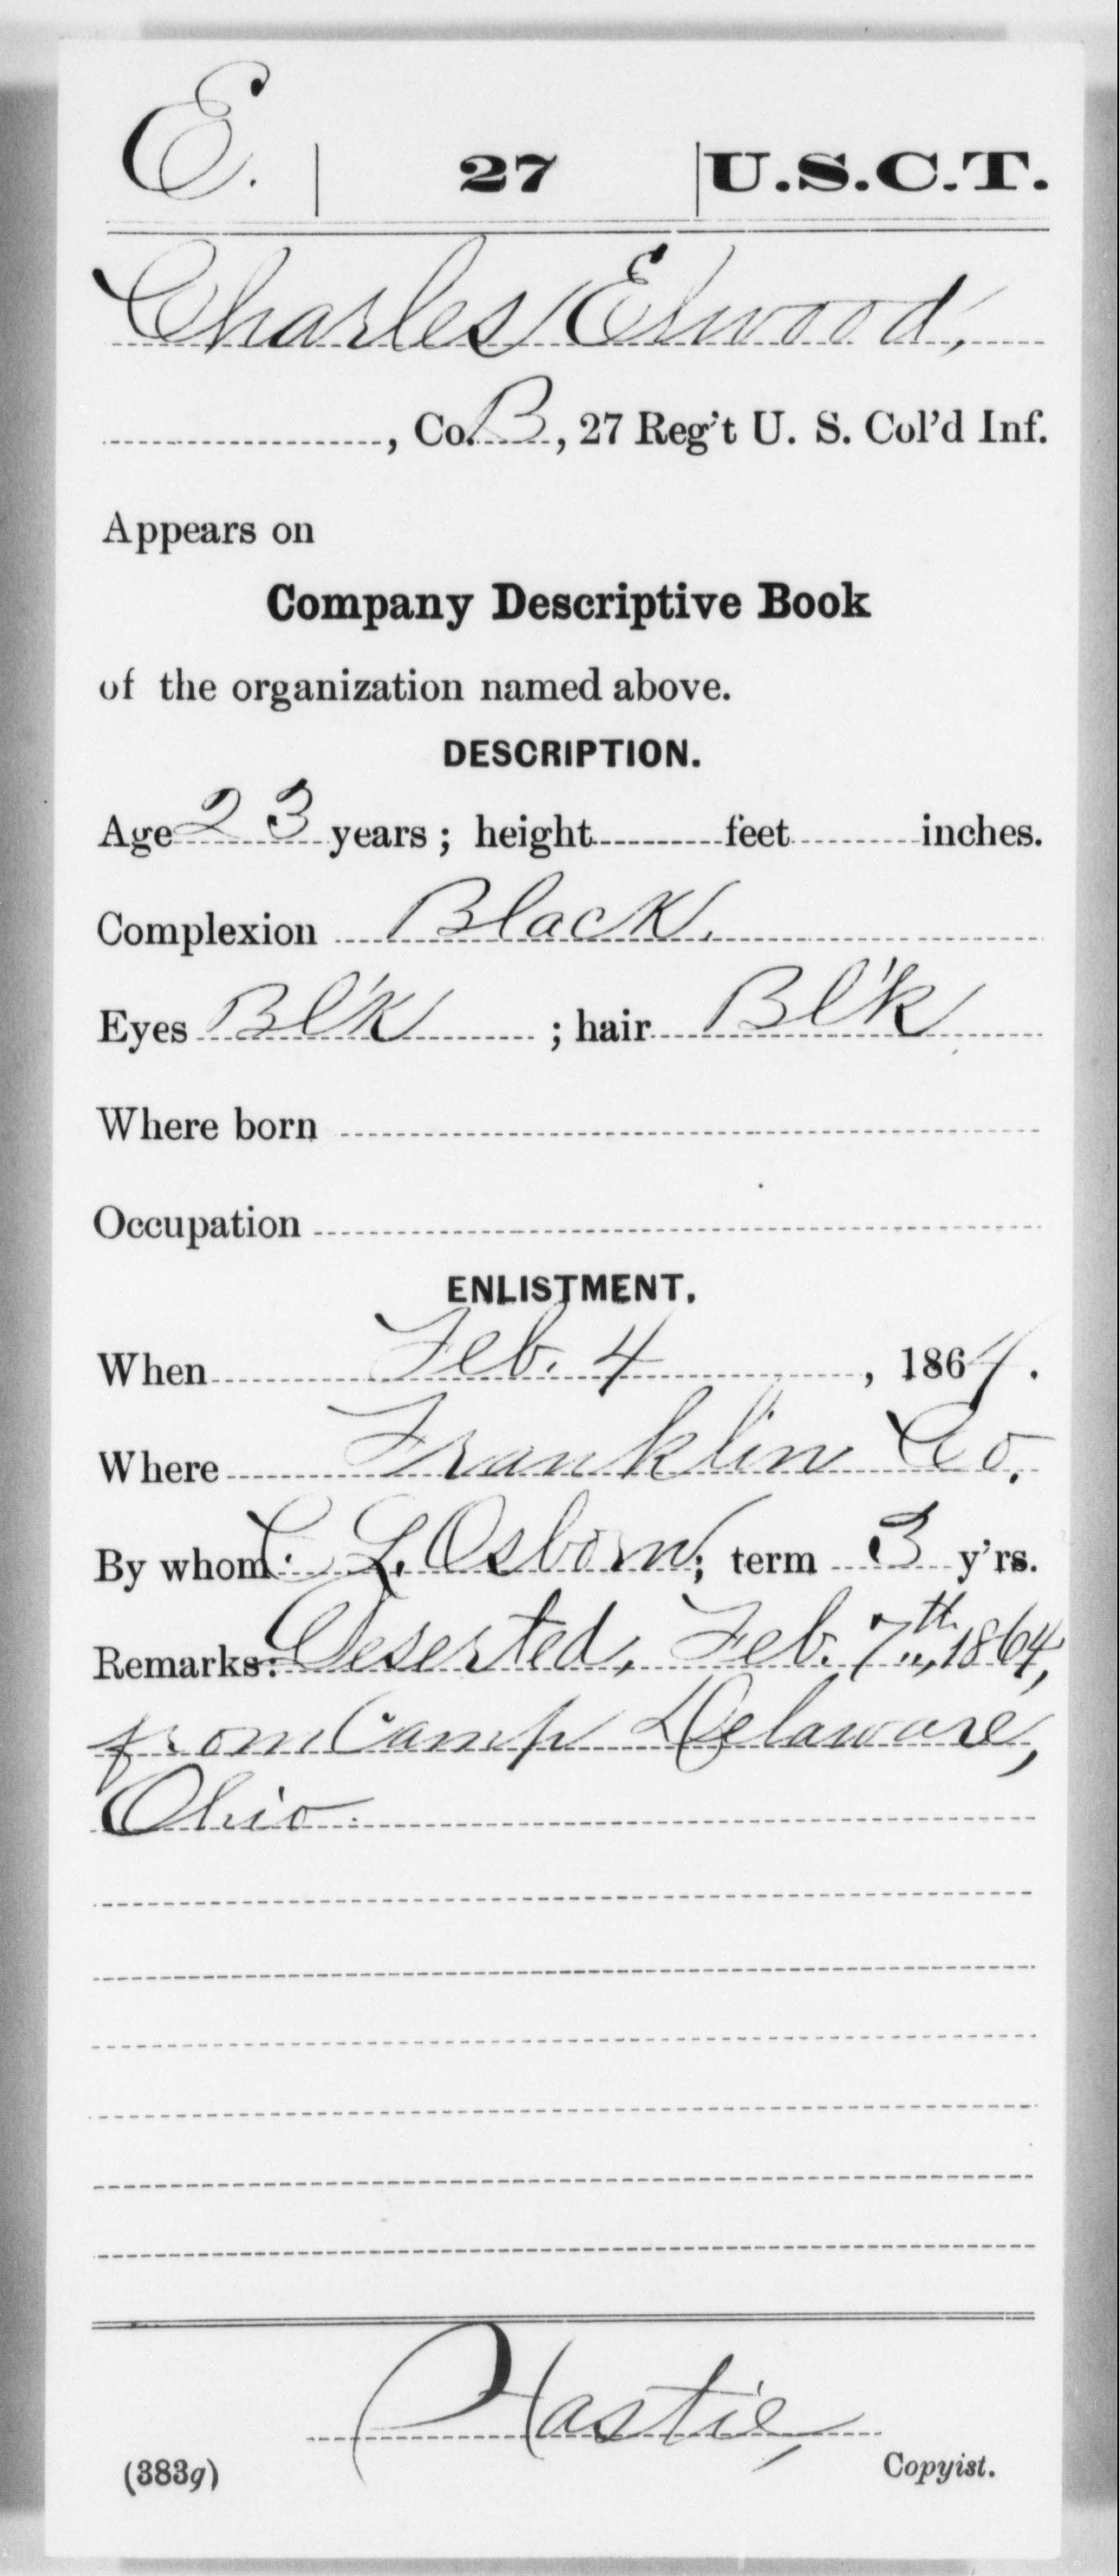 E. 27 U.S.C.T.
Charles Elwood,
, Co. B, 27 Reg't U. S. Col'd Inf.
Appears on
Company Descriptive Book
of the organization named above.
DESCRIPTION.
Age 23 years; height feet inches.
Complexion Black.
Eyes Bl'k ; hair Bl'k
Where born
Occupation
ENLISTMENT.
When Feb. 4 , 1864.
Where Franklin Co.
By whom C. L. Osborn; term 3 y'rs.
Remarks: Deserted, Feb. 7th, 1864,
from Camp Delaware,
Ohio.
Hastie,
(383g) Copyist.